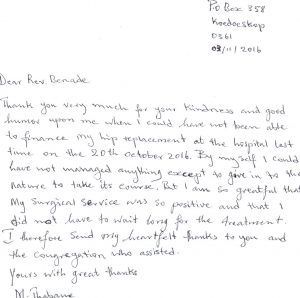 P.O Box 358
Koedoeskop
0361
03/11/2016
Dear Rev. Benade.
Thank you very much for your kindness and good
humor upon me when I could have not been able
to finance my hip replacement at the hospital last
time on the 20th October 2016. By myself I could
have not managed anything except to give in to the
nature to take its course. But I am so greatful that
My Surgical Service was so positive and that I
did not have to wait long for the treatment.
I therefore Send my heartfelt thanks to you and
the Congregation who assisted.
Yours with great thanks
M.